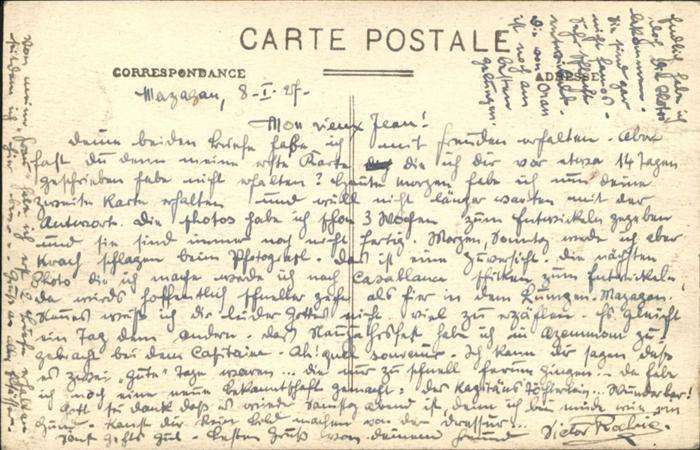 CARTE POSTALE
CORRESPONDANCE
ADRESSE
Mazagan, 8-I-27-
Mon vieux Jean!
deine beiden Briefe habe ich mit freuden erhalten. Aber
hast du denn meine erste Karte die ich dir vor etwa 14 Tagen
geschrieben habe nicht erhalten? heute morgen habe ich nun deine
zweite Karte erhalten und will nicht länger warten mit der
Antwort. die photos habe ich schon 3 Wochen zum Entwickeln gegeben
und sie sind immer noch nicht fertig. Morgen, Sonntag werde ich aber
Krach schlagen beim Photograf. das ist eine. die nächsten
Photo die ich mache werde ich nach Casablanca schicken zum Entwickeln,
da wirds hoffentlich schneller gehn als hier in dem Mazagan.
Neues weiß ich dir leider Gottes nicht viel zu erzählen. Es gleicht
ein Tag dem andern. das Neujahrsfest habe ich in Azemmour zu-
gebracht bei dem Capitaine. Ah! quel souvenir. Ich kann dir sagen daß
es zwei "gute" Tage waren... die nur zu schnell herum gingen.. da habe
ich noch eine neue bekanntschaft gemacht, des Kapitäns Töchterlein... Wunderbar!
Gott sei dank daß es wieder Samstag abend ist, denn ich bin müde wie ein
Hund. Kannst dir kein bild machen von der
sonst gehts gut. besten Gruß von deinem freund Victor
Endlich habe ich
doch die Photo
bekommen.
sie sind gar
nicht famos.
sehr schlecht
entwickelt.
die von Oran
ist noch am
besten
gelungen.